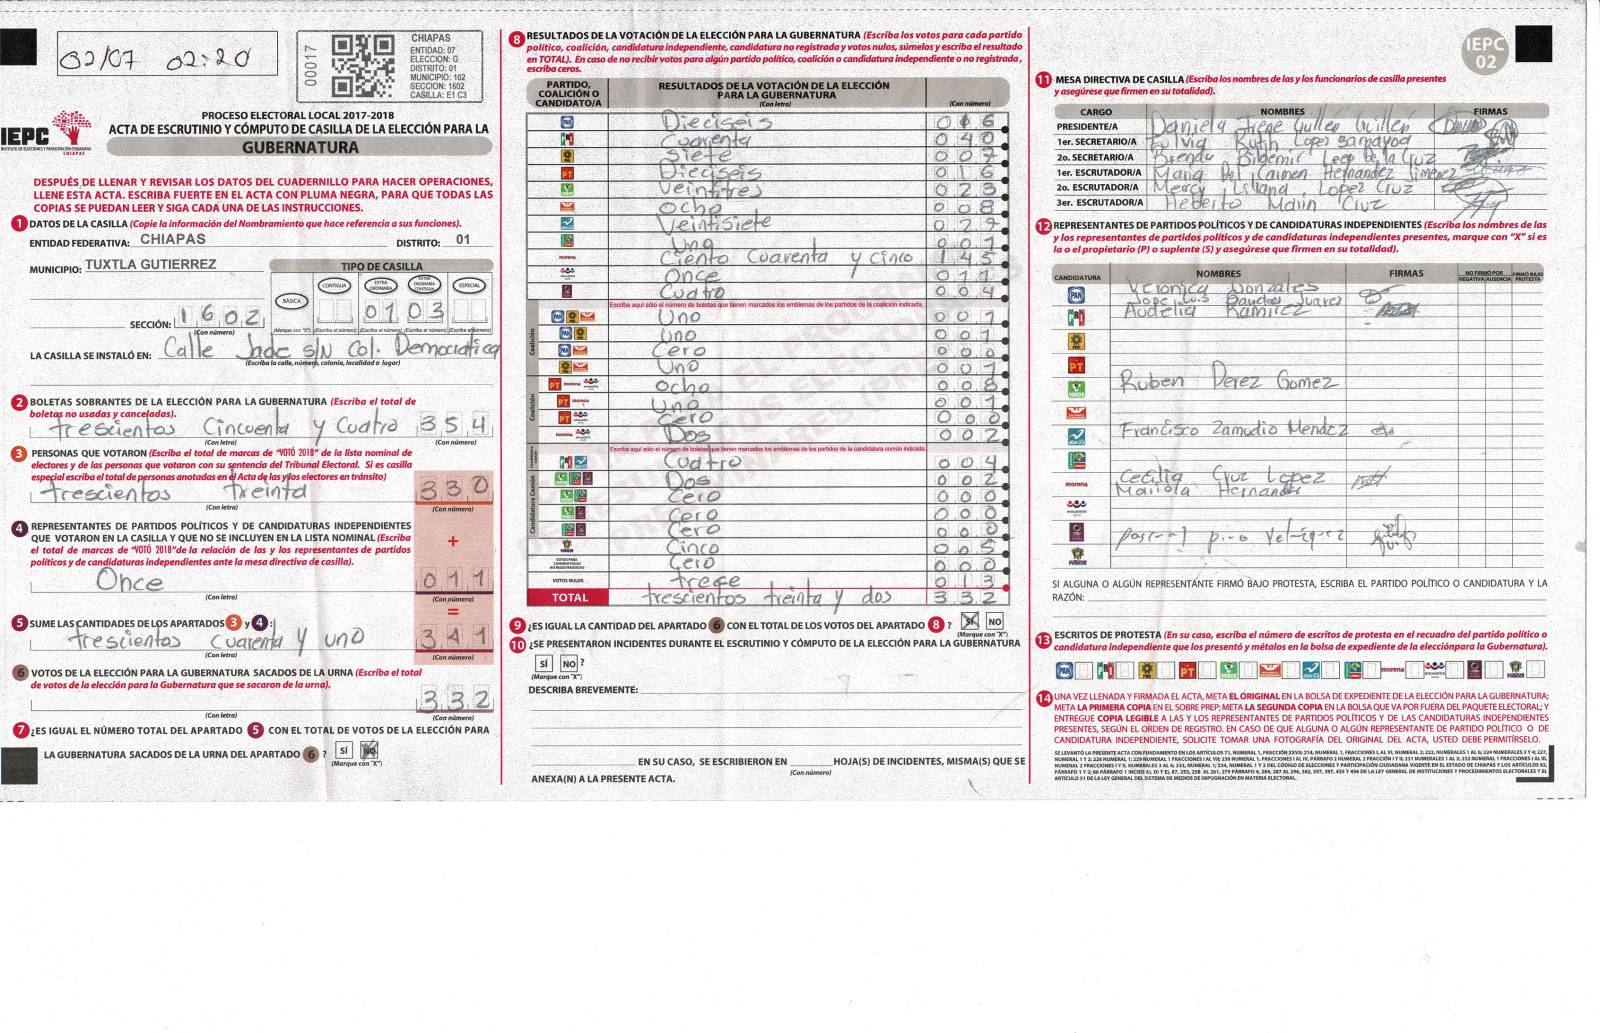 02/07 02:20
00017
CHIAPAS
ENTIDAD: 07
ELECCION: G
DISTRITO: 01
MUNICIPIO: 102
SECCION: 1602
CASILLA: E1 C3
IEPC
CHIAPAS
PROCESO ELECTORAL LOCAL 2017-2018
ACTA DE ESCRUTINIO Y CÓMPUTO DE CASILLA DE LA ELECCIÓN PARA LA
GUBERNATURA
DESPUÉS DE LLENAR Y REVISAR LOS DATOS DEL CUADERNILLO PARA HACER OPERACIONES,
LLENE ESTA ACTA. ESCRIBA FUERTE EN EL ACTA CON PLUMA NEGRA, PARA QUE TODAS LAS
COPIAS SE PUEDAN LEER Y SIGA CADA UNA DE LAS INSTRUCCIONES.
1 DATOS DE LA CASILLA (Copie la información del Nombramiento que hace referencia a sus funciones).
ENTIDAD FEDERATIVA: CHIAPAS DISTRITO: 01
MUNICIPIO: TUXTLA GUTIERREZ
TIPO DE CASILLA
BÁSICA CONTIGUA EXTRAORDINARIA EXTRAORDINARIA CONTIGUA ESPECIAL
01 03
SECCIÓN: 1602
(Con número) (Marque con "X") (Escriba el número) (Escriba el número) (Escriba el número) (Escriba el número)
LA CASILLA SE INSTALÓ EN: Calle Jade s/N Col. Democratica
(Escriba la calle, número, colonia, localidad o lugar)
2 BOLETAS SOBRANTES DE LA ELECCIÓN PARA LA GUBERNATURA (Escriba el total de
boletas no usadas y canceladas).
trescientos Cincuenta y Cuatro 354
(Con letra) (Con número)
3 PERSONAS QUE VOTARON (Escriba el total de marcas de "VOTÓ 2018" de la lista nominal de
electores y de las personas que votaron con su sentencia del Tribunal Electoral. Si es casilla
especial escriba el total de personas anotadas en el Acta de las y los electores en tránsito)
trescientos treinta 330
(Con letra) (Con número)
4 REPRESENTANTES DE PARTIDOS POLÍTICOS Y DE CANDIDATURAS INDEPENDIENTES
QUE VOTARON EN LA CASILLA Y QUE NO SE INCLUYEN EN LA LISTA NOMINAL (Escriba
el total de marcas de "VOTÓ 2018"de la relación de las y los representantes de partidos
políticos y de candidaturas independientes ante la mesa directiva de casilla).
+
Once 011
(Con letra) (Con número)
=
5 SUME LAS CANTIDADES DE LOS APARTADOS 3 y 4 :
trescientos cuarenta y uno 341
(Con letra) (Con número)
6 VOTOS DE LA ELECCIÓN PARA LA GUBERNATURA SACADOS DE LA URNA (Escriba el total
de votos de la elección para la Gubernatura que se sacaron de la urna).
332
(Con letra) (Con número)
7 ¿ES IGUAL EL NÚMERO TOTAL DEL APARTADO 5 CON EL TOTAL DE VOTOS DE LA ELECCIÓN PARA
LA GUBERNATURA SACADOS DE LA URNA DEL APARTADO 6 ? SÍ NO
(Marque con "X")
8 RESULTADOS DE LA VOTACIÓN DE LA ELECCIÓN PARA LA GUBERNATURA (Escriba los votos para cada partido
político, coalición, candidatura independiente, candidatura no registrada y votos nulos, súmelos y escriba el resultado
en TOTAL). En caso de no recibir votos para algún partido político, coalición o candidatura independiente o no registrada,
escriba ceros.
PARTIDO, COALICIÓN O CANDIDATO/A
RESULTADOS DE LA VOTACIÓN DE LA ELECCIÓN PARA LA GUBERNATURA
(Con letra) (Con número)
PAN Dieciseis 016
PRI Cuarenta 040
Siete 007
PT Dieciseis 016
Veintitres 023
Ocho 008
Veintisiete 027
Uno 001
morena Ciento Cuarenta y cinco 145
Once 011
Cuatro 004
Escriba aquí sólo el número de boletas que tienen marcados los emblemas de los partidos de la coalición indicada.
Coalición
Uno 001
Uno 001
Cero 000
Uno 001
Coalición
PT morena Ocho 008
PT morena Uno 001
PT Cero 000
morena Dos 002
Escriba aquí sólo el número de boletas que tienen marcados los emblemas de los partidos de la candidatura común indicada.
Candidatura Común
Cuatro 004
Dos 002
Cero 000
Cero 000
Cero 000
Cinco 005
VOTOS PARA CANDIDATOS/AS NO REGISTRADOS/AS Cero 000
VOTOS NULOS trece 013
TOTAL trescientos treinta y dos 332
9 ¿ES IGUAL LA CANTIDAD DEL APARTADO 6 CON EL TOTAL DE LOS VOTOS DEL APARTADO 8 ? SÍ NO
(Marque con "X")
10 ¿SE PRESENTARON INCIDENTES DURANTE EL ESCRUTINIO Y CÓMPUTO DE LA ELECCIÓN PARA LA GUBERNATURA
SÍ NO ?
(Marque con "X")
DESCRIBA BREVEMENTE:
EN SU CASO, SE ESCRIBIERON EN HOJA(S) DE INCIDENTES, MISMA(S) QUE SE
(Con número)
ANEXA(N) A LA PRESENTE ACTA.
IEPC
02
11 MESA DIRECTIVA DE CASILLA (Escriba los nombres de las y los funcionarios de casilla presentes
y asegúrese que firmen en su totalidad).
CARGO NOMBRES FIRMAS
PRESIDENTE/A Daniela Irene Guillen Guillen
1er. SECRETARIO/A Fulvia Ruth Lopez Samayoa
2o. SECRETARIO/A Brenda de la Cruz
1er. ESCRUTADOR/A Maria Del Carmen Hernandez Jimenez
2o. ESCRUTADOR/A Mercy Liliana Lopez Cruz
3er. ESCRUTADOR/A Heberto Marin Cruz
12 REPRESENTANTES DE PARTIDOS POLÍTICOS Y DE CANDIDATURAS INDEPENDIENTES (Escriba los nombres de las
y los representantes de partidos políticos y de candidaturas independientes presentes, marque con "X" si es
la o el propietario (P) o suplente (S) y asegúrese que firmen en su totalidad).
CANDIDATURA NOMBRES FIRMAS NO FIRMÓ POR NEGATIVA/AUSENCIA FIRMÓ BAJO PROTESTA
PAN Veronica Gonzales
Jose Luis Suarez
PRI Audelia Ramirez
PT
Ruben Perez Gomez
Francisco Zamudio Mendez
Cecilia Cruz Lopez
morena Mariola Hernandez
Pascual Velazquez
SI ALGUNA O ALGÚN REPRESENTANTE FIRMÓ BAJO PROTESTA, ESCRIBA EL PARTIDO POLÍTICO O CANDIDATURA Y LA
RAZÓN:
13 ESCRITOS DE PROTESTA (En su caso, escriba el número de escritos de protesta en el recuadro del partido político o
candidatura independiente que los presentó y métalos en la bolsa de expediente de la elecciónpara la Gubernatura).
14 UNA VEZ LLENADA Y FIRMADA EL ACTA, META EL ORIGINAL EN LA BOLSA DE EXPEDIENTE DE LA ELECCIÓN PARA LA GUBERNATURA;
META LA PRIMERA COPIA EN EL SOBRE PREP; META LA SEGUNDA COPIA EN LA BOLSA QUE VA POR FUERA DEL PAQUETE ELECTORAL; Y
ENTREGUE COPIA LEGIBLE A LAS Y LOS REPRESENTANTES DE PARTIDOS POLÍTICOS Y DE LAS CANDIDATURAS INDEPENDIENTES
PRESENTES, SEGÚN EL ORDEN DE REGISTRO. EN CASO DE QUE ALGUNA O ALGÚN REPRESENTANTE DE PARTIDO POLÍTICO O DE
CANDIDATURA INDEPENDIENTE, SOLICITE TOMAR UNA FOTOGRAFÍA DEL ORIGINAL DEL ACTA, USTED DEBE PERMITÍRSELO.